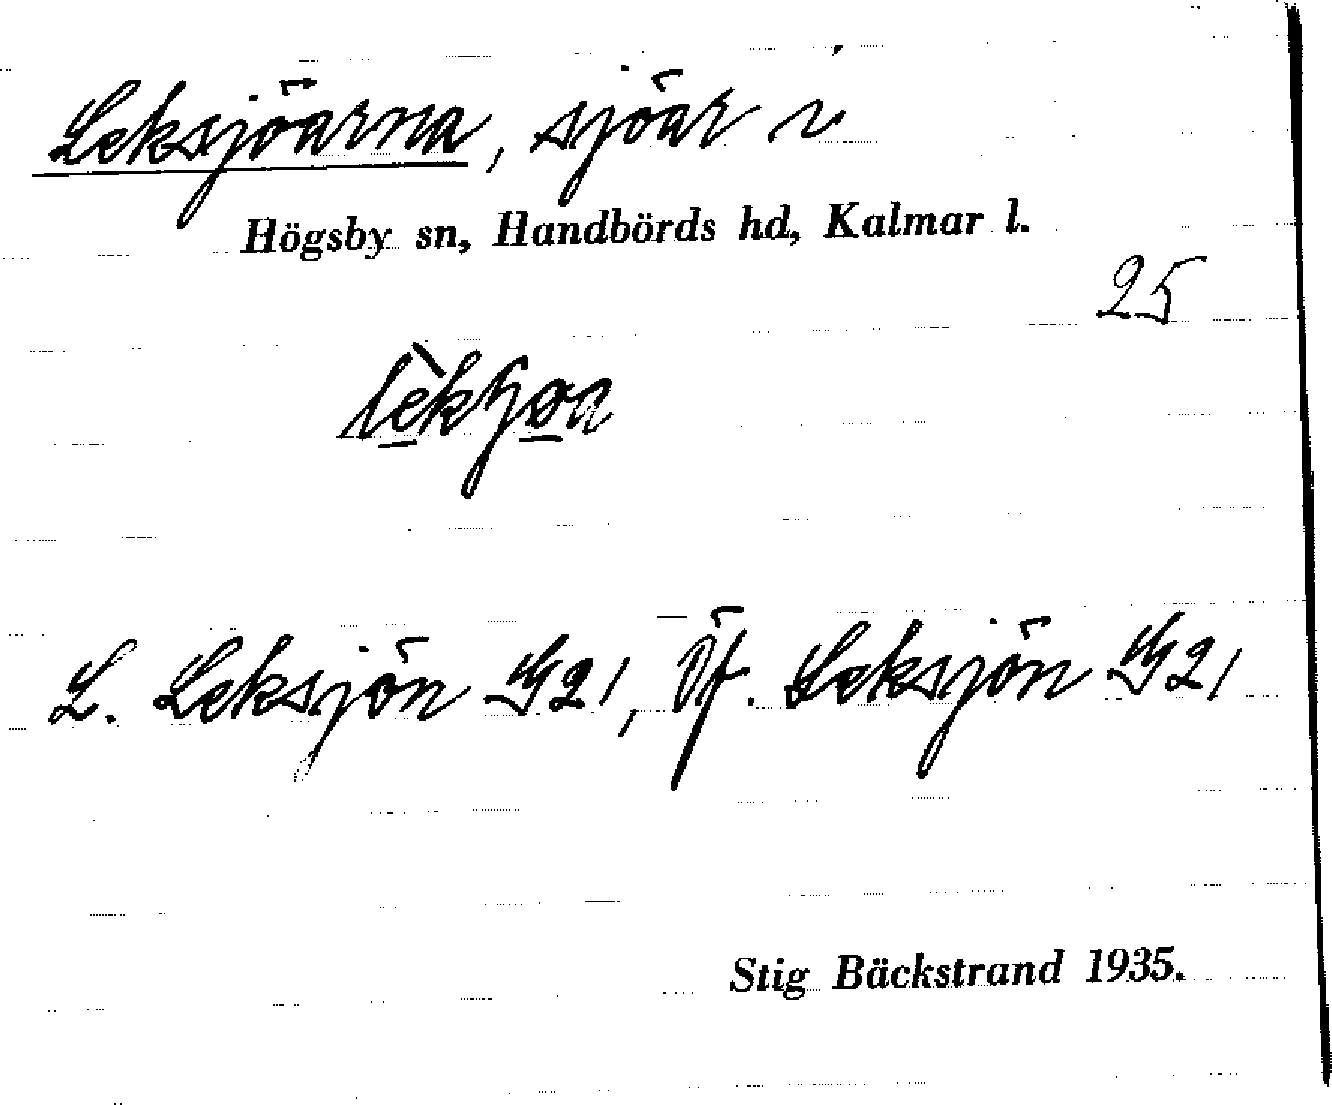 Leksjöarna, sjöar i
Högsby sn, Handbörds hd, Kalmar l.
25
L. Leksjön G21, Öf. Leksjön G21
Stig Bäckstrand 1935.